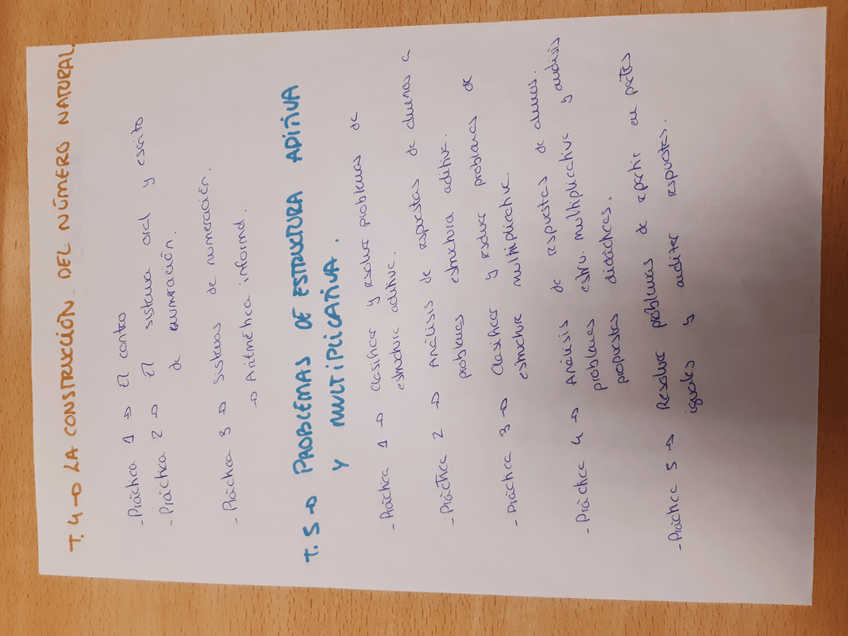 T. 4 → LA CONSTRUCCIÓN DEL NÚMERO NATURAL.
- Práctica 1 → El conteo
- Práctica 2 → El sistema oral y escrito
de numeración.
- Práctica 3 → Sistemas de numeración.
→ Aritmética informal.
T. 5 → PROBLEMAS DE ESTRUCTURA ADITIVA
Y MULTIPLICATIVA.
- Práctica 1 → Clasificar y resolver problemas de
estructura aditiva.
- Práctica 2 → Análisis de respuestas de alumnos a
problemas estructura aditiva.
- Práctica 3 → Clasificar y resolver problemas de
estructura multiplicativa.
- Práctica 4 → Análisis de respuestas de alumnos.
problemas estru. multiplicativa y análisis
propuestas didácticas.
- Práctica 5 → Resolver problemas de repartir en partes
iguales y analizar respuestas.